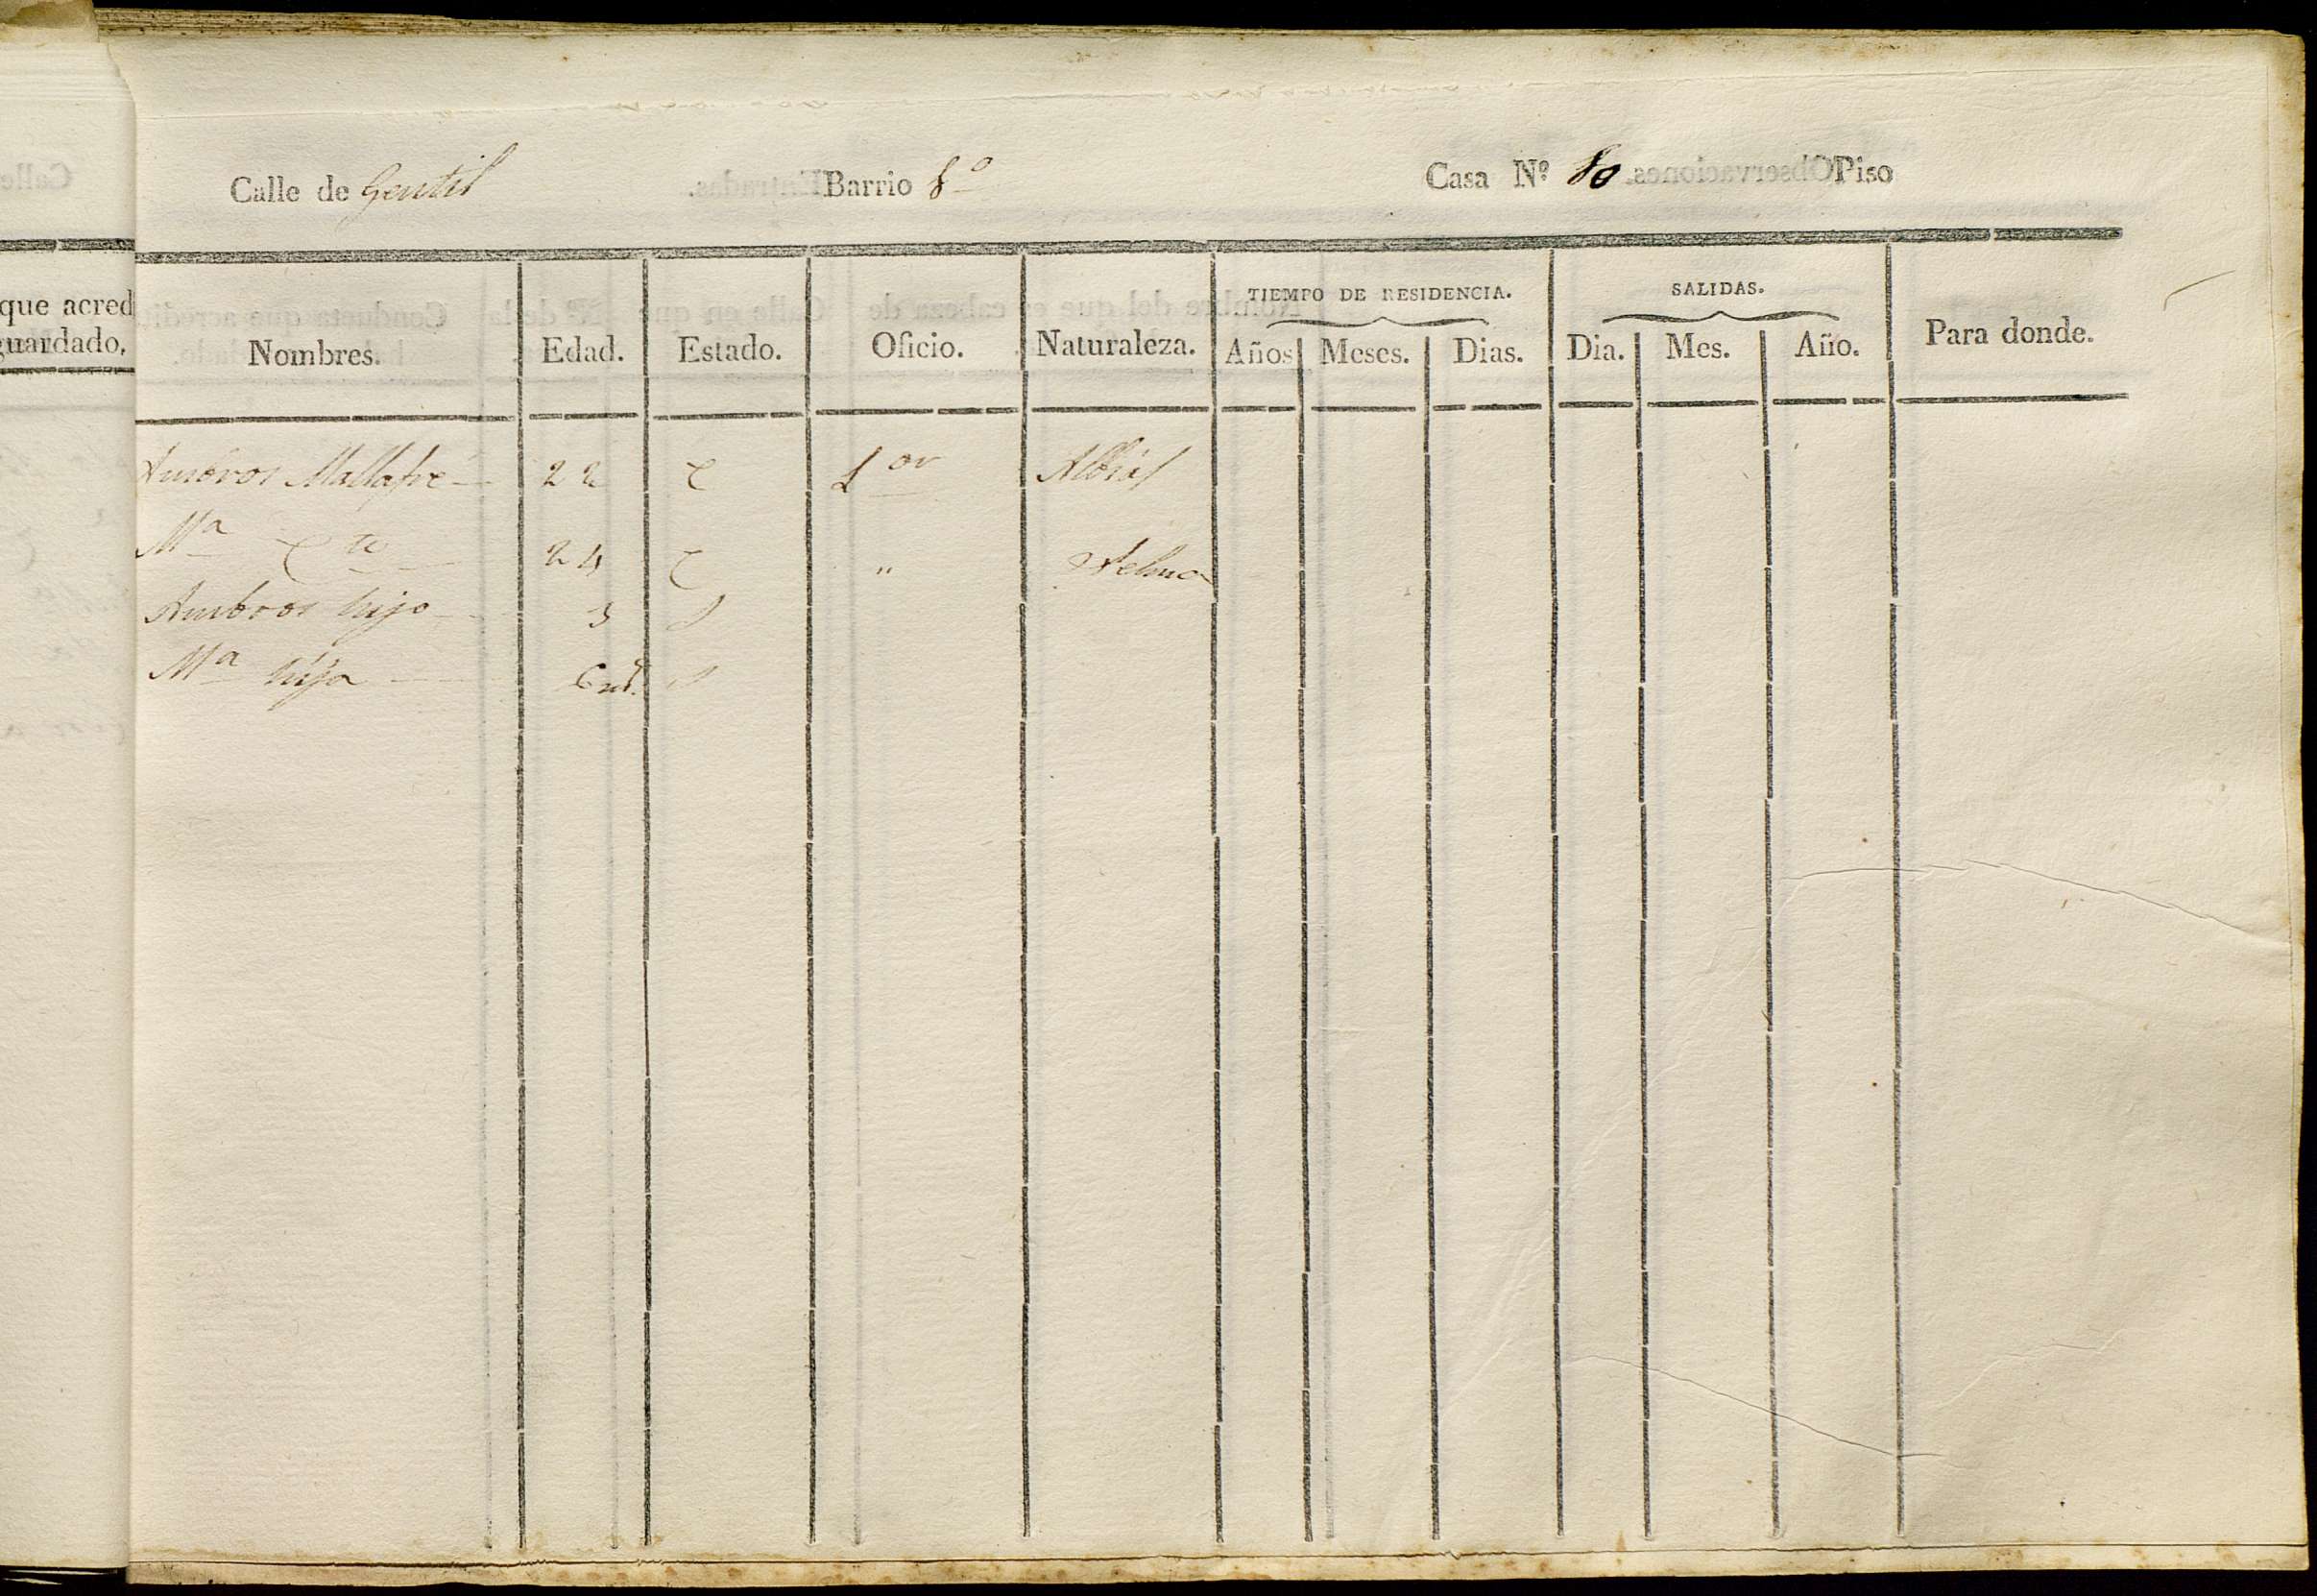 Calle de Gentil Barrio 8º Casa Nº 80 Piso
que acred
guardado,
TIEMPO DE RESIDENCIA. SALIDAS.
Nombres. Edad. Estado. Oficio. Naturaleza. Años Meses. Dias. Dia. Mes. Año. Para donde.
Ambros Mallafré 22 C Lor Albiol
Mª C te 24 C " Selma
Ambros hijo 3 S
Mª hija 6 ms. S